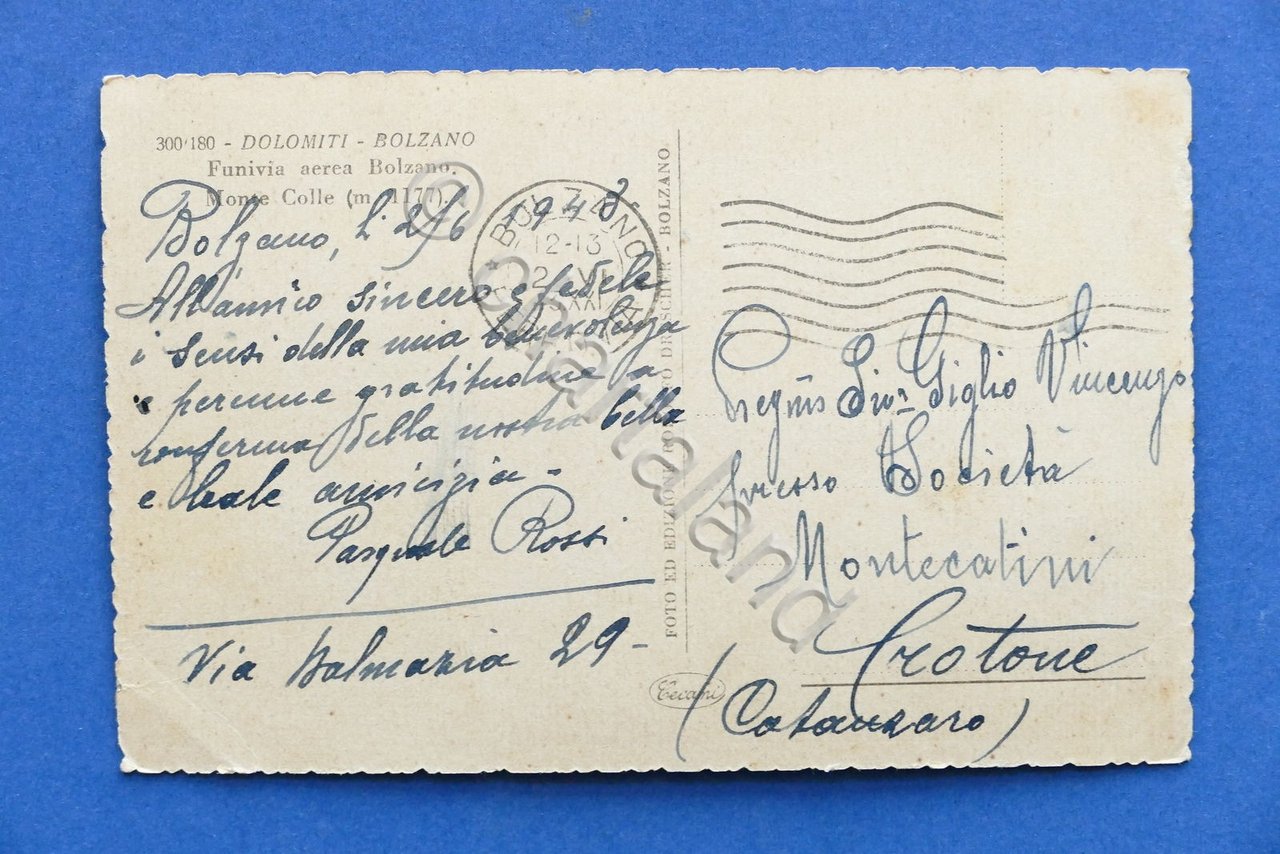 300/180 - DOLOMITI - BOLZANO
Funivia aerea Bolzano.
Monte Colle (m. 1177).
Bolzano, li 2/6 1943.
All'amico sincero e fedele
i sensi della mia benevolenza
e perenne gratitudine a
conferma della nostra bella
e leale amicizia -
Pasquale Rossi
Via Dalmazia 29 -
BOLZANO
12-13
2 VI
FOTO ED EDIZIONI - BOLZANO
Tecami
Giglio Vincenzo
presso Società
Montecatini
Crotone
(Catanzaro)
© Chartaland